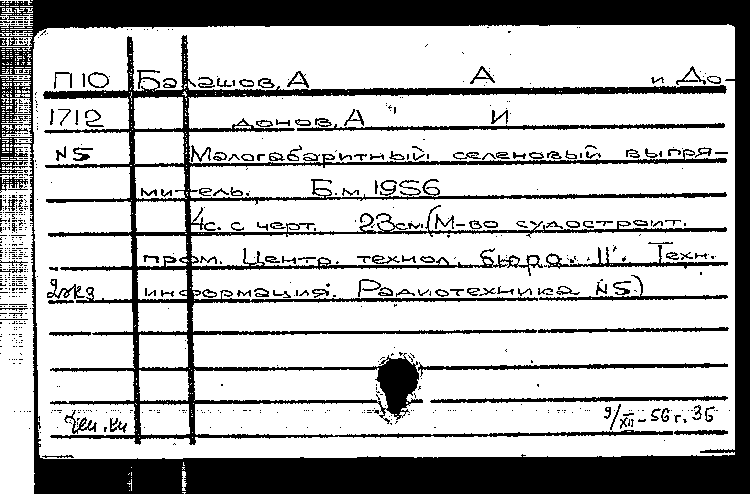 П10 Балашов, А А и До-
1712 донов, А И
N5 Малогабаритный селеновый выпря-
митель. Б.м. 1956
4с. с черт. 23см. (М-во судостроит.
пром. Центр. технол. бюро. II. Техн.
2экз. информация. Радиотехника N5)
9/XII-56г. 35